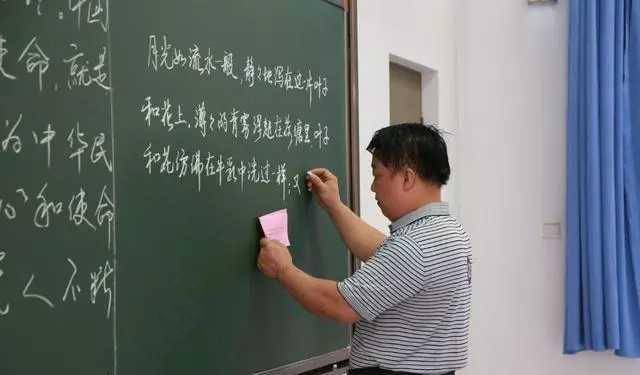 中国
使命,就是
为中华民
和使命
人不断
月光如流水一般,静々地泻在这一片叶子
和花上,薄々的青雾浮起在荷塘里,叶子
和花仿佛在牛乳中洗过一样;